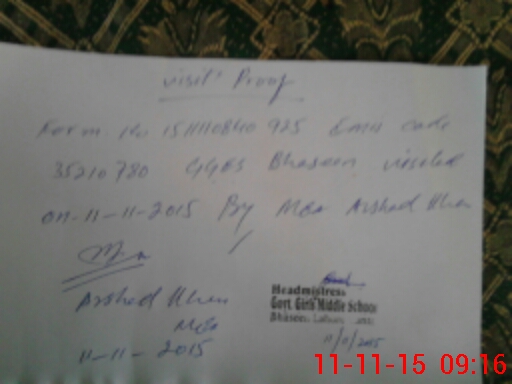 Visit Proof
Form No 151110840925 Emis code
35210780 GGES Bhaseen visited
on 11-11-2015 By MEA Arshad Khan
Arshad Khan
MEA
11-11-2015
Headmistress
Govt. Girls Middle School
Bhaseen Lahore
11/11/2015
11-11-15 09:16